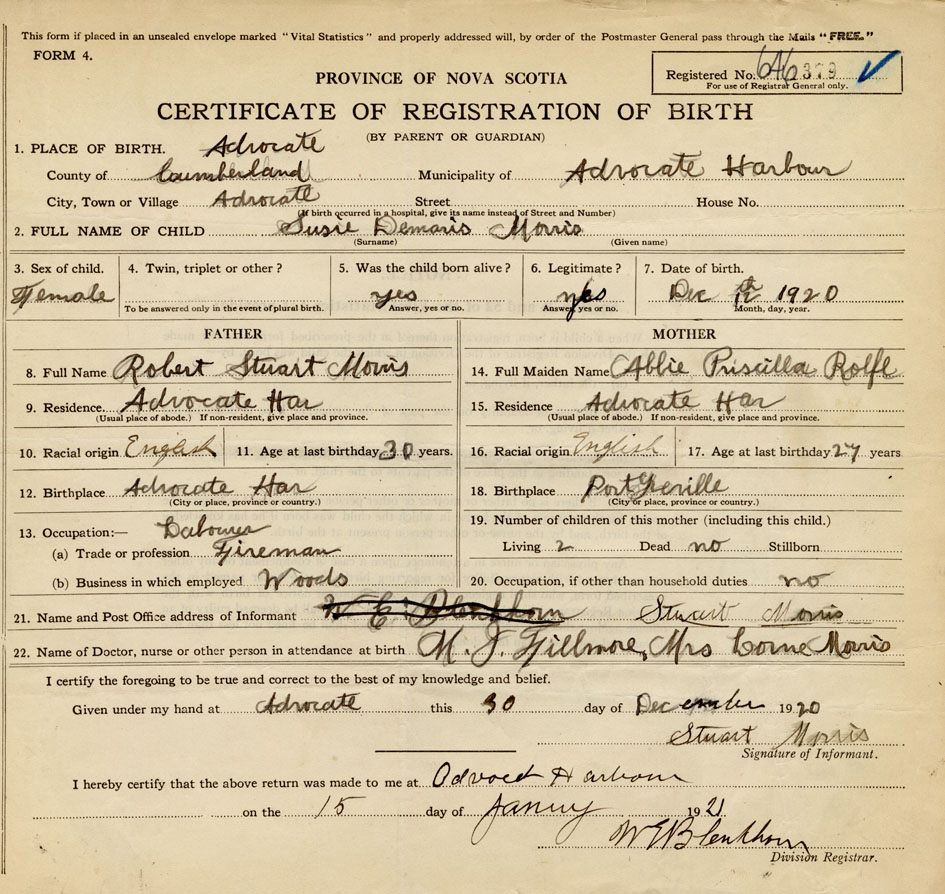 This form if placed in an unsealed envelope marked "Vital Statistics" and properly addressed will, by order of the Postmaster General pass through the Mails "FREE."
FORM 4.
Registered No. 646379
For use of Registrar General only.
PROVINCE OF NOVA SCOTIA
CERTIFICATE OF REGISTRATION OF BIRTH
(BY PARENT OR GUARDIAN)
1. PLACE OF BIRTH. Advocate
County of Cumberland Municipality of Advocate Harbour
City, Town or Village Advocate Street House No.
(If birth occurred in a hospital, give its name instead of Street and Number)
2. FULL NAME OF CHILD Susie Demaris Morris
(Surname) (Given name)
3. Sex of child. 4. Twin, triplet or other? 5. Was the child born alive? 6. Legitimate? 7. Date of birth.
Female yes yes Dec 1920
To be answered only in the event of plural birth. Answer, yes or no. Answer, yes or no. Month, day, year.
FATHER MOTHER
8. Full Name Robert Stuart Morris 14. Full Maiden Name Abbie Priscilla Rolfe
9. Residence. Advocate Har 15. Residence Advocate Har
(Usual place of abode.) If non-resident, give place and province. (Usual place of abode.) If non-resident, give place and province.
10. Racial origin English 11. Age at last birthday 30 years. 16. Racial origin English 17. Age at last birthday 27 years
12. Birthplace Advocate Har 18. Birthplace Port Greville
(City or place, province or country.) (City or place, province or country.)
13. Occupation:— Labourer 19. Number of children of this mother (including this child.)
(a) Trade or profession Fireman Living 2 Dead no Stillborn
(b) Business in which employed Woods 20. Occupation, if other than household duties no
21. Name and Post Office address of Informant W E Blenkhorn Stuart Morris
22. Name of Doctor, nurse or other person in attendance at birth M. J. Fillmore, Mrs Lorne Morris
I certify the foregoing to be true and correct to the best of my knowledge and belief.
Given under my hand at Advocate this 30 day of December 1920
Stuart Morris
Signature of Informant.
I hereby certify that the above return was made to me at Advocat Harbour
on the 15 day of Januy 1921
W E Blenkhorn
Division Registrar.